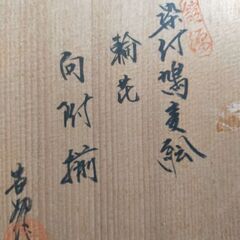 染付鳩麦絵
輪花
向附揃